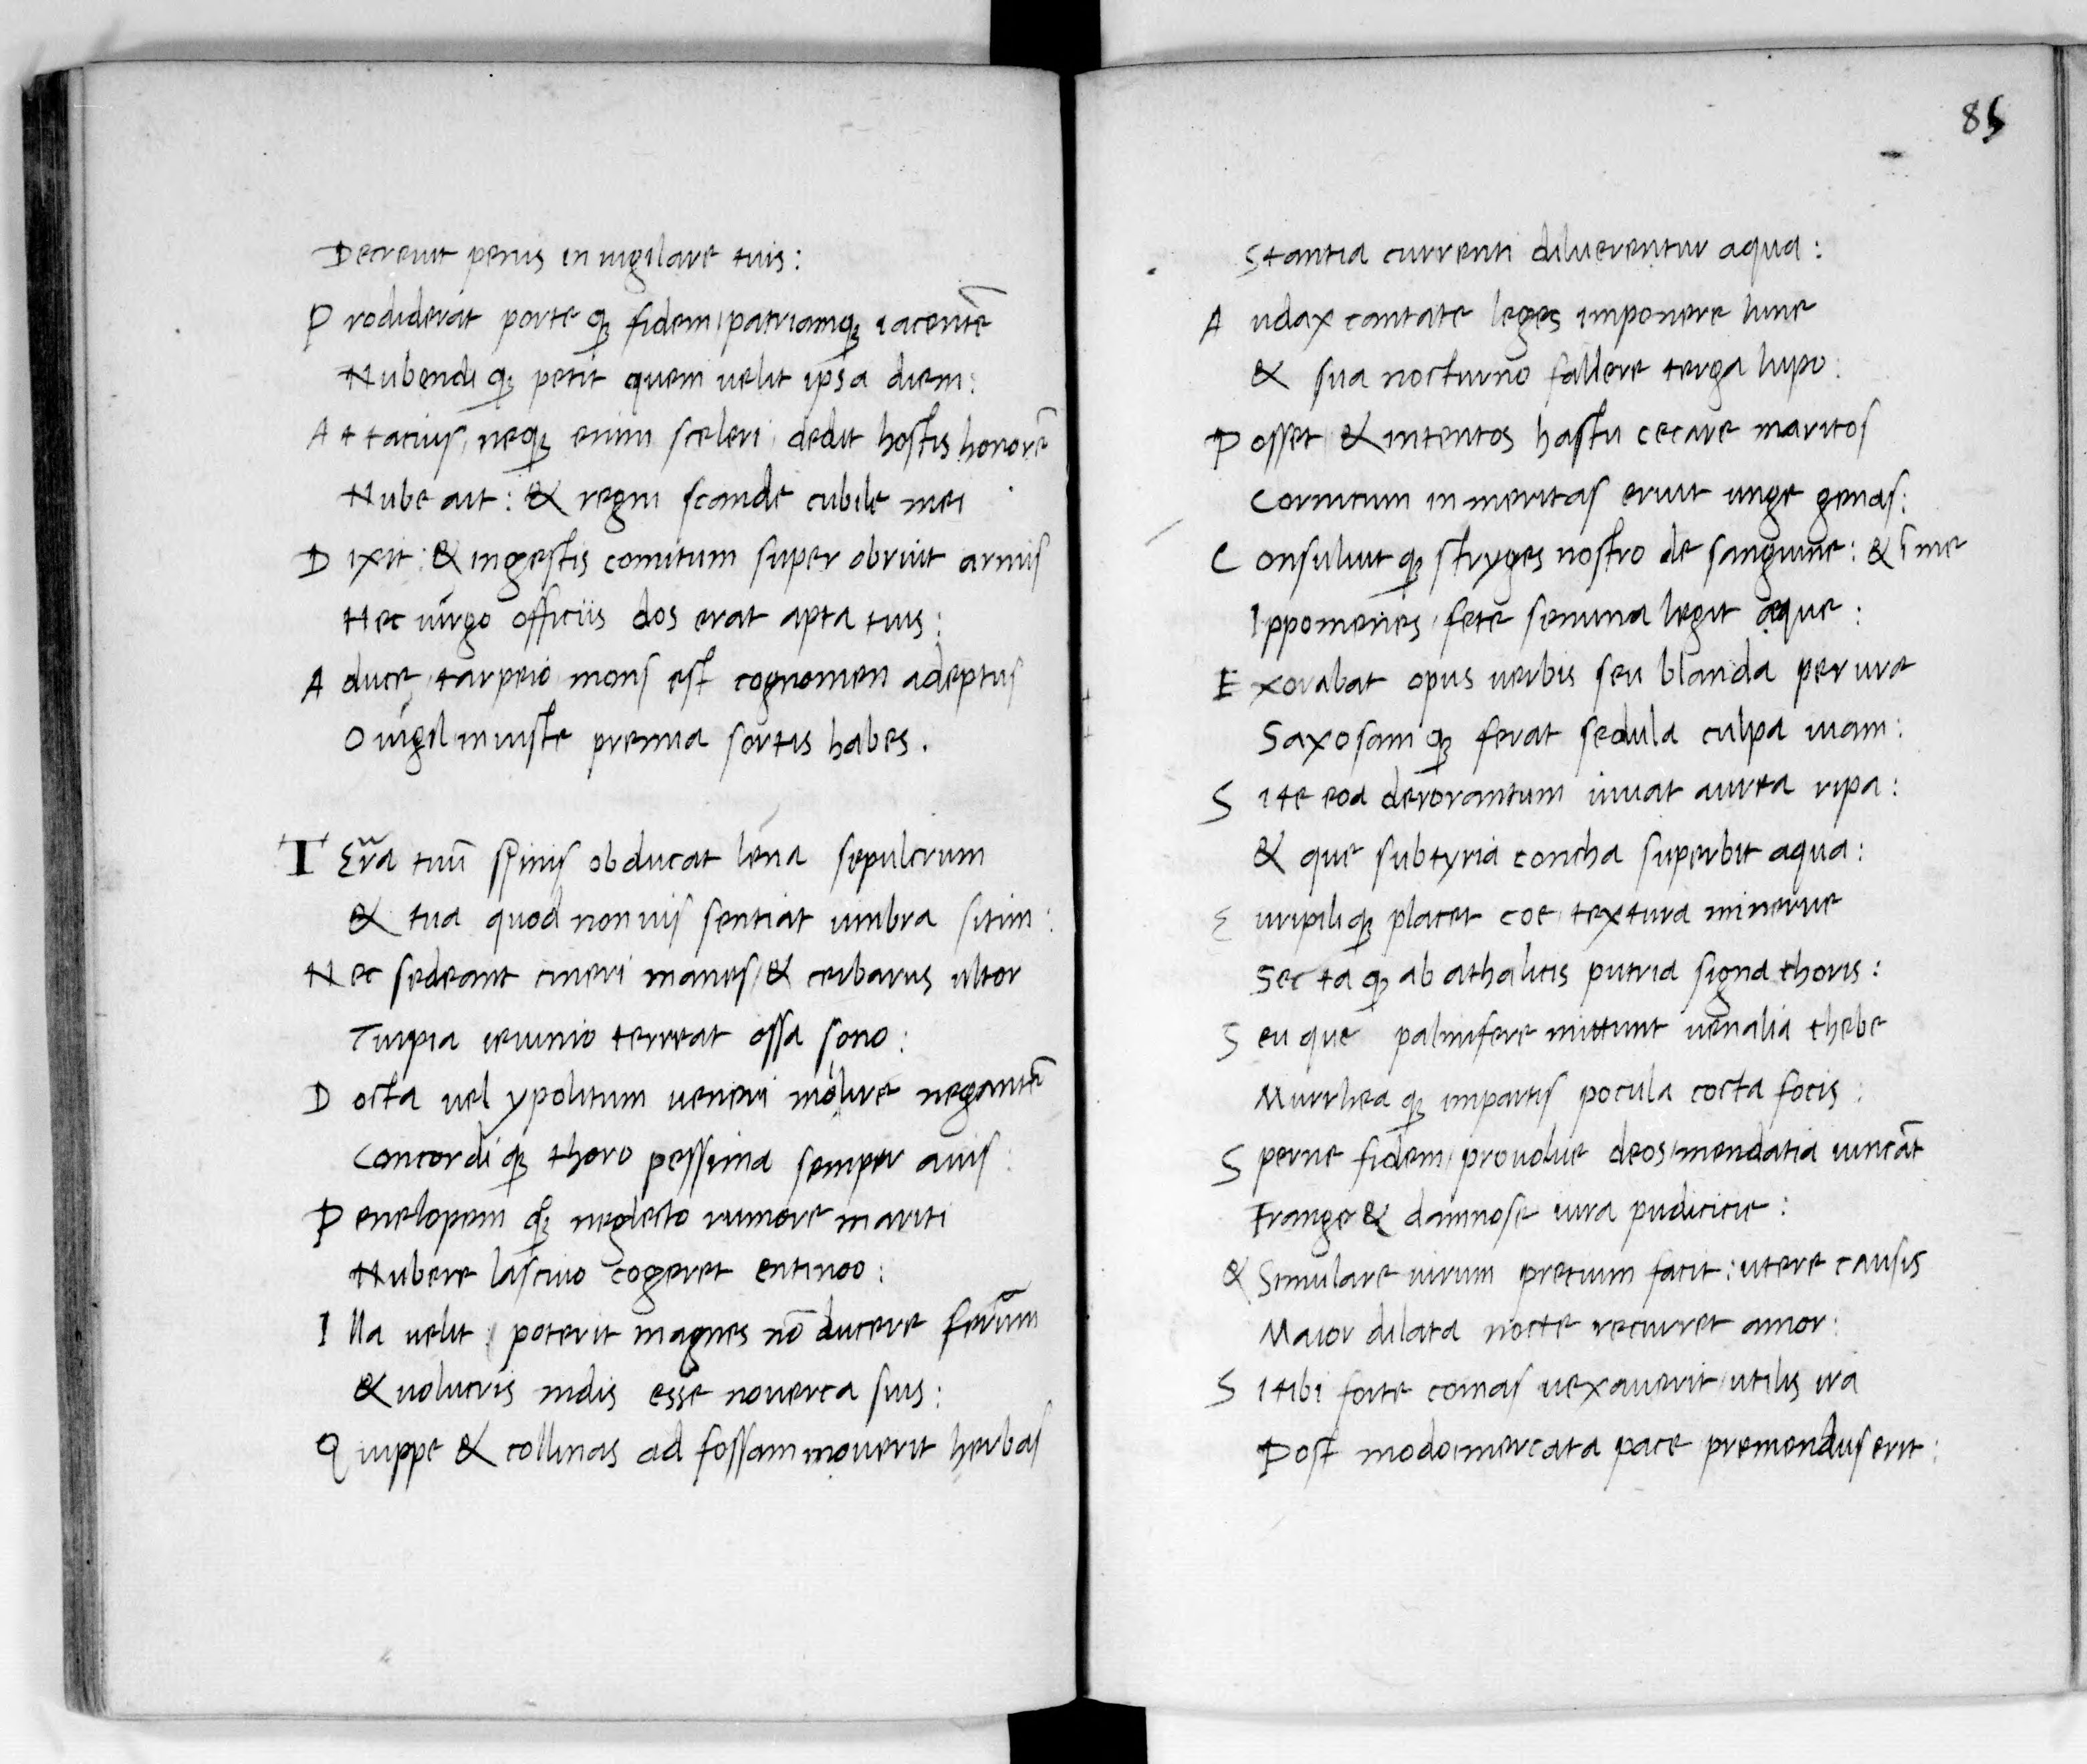 Decreuit penis in uigilare tuis:
P rodiderat porte qꝫ fidem / patriamqꝫ iacentẽ
Nubendi qꝫ petit quem uelit ipsa diem:
A t tatius / neqꝫ enim sceleri / dedit hostis honorẽ
Nube ait: & regni scande cubile mei
D ixit: & ingestis comitum super obruit armis
Hec uirgo officiis dos erat apta tuis:
A duce / tarpeio mons est cognomen adeptus
O uigil iniuste premia sortis habes.
T Er̃a tuũ spinis obducat lena sepulcrum
& tua quod non uis sentiat umbra sitim:
N ec sedeant cineri manes / & cerbarus ultor
Turpia ieiunio terreat ossa sono:
D octa uel ypolitum ueneri molire negantẽ
Concordi qꝫ thoro pessima semper auis:
P enelopem qꝫ neglecto rumore mariti
Nubere lasciuo cogeret entinoo:
I lla uelit / poterit magnes nõ ducere fer̃um
& uolucris nidis esse nouerca suis:
Q uippe & collinas ad fossam mouerit herbas
85
Stantia currenti diluerentur aqua:
A udax cantate leges imponere lune
& sua nocturno fallere terga lupo:
P osset / & intentos hastu cecare maritos
Cornicum in meritas eruit unge genas:
C onsuluit qꝫ stryges nostro de sanguine: & ĩ me
Ippomenes / fete semina legit eque:
E xorabat opus uerbis seu blanda perure
Saxosam qꝫ ferat sedula culpa uiam:
S i te eoa derorantum iuuat aurea ripa:
& que sub tyria concha superbit aqua:
E uripili qꝫ placet coe / textura minerue
Sec ta qꝫ ab athalicis putria signa thoris:
S eu que palmifere mittunt uenalia thebe
Murrhea qꝫ impartis pocula cocta focis:
S perne fidem / prouolue deos / mendatia uincãt
Frange & damnose iura pudicicie:
& Simulare uirum precium facit: utere causis
Maior dilata nocte recurret amor:
S i tibi forte comas uexauerit / utilis ira
Post modo mercata pace premendus erit: